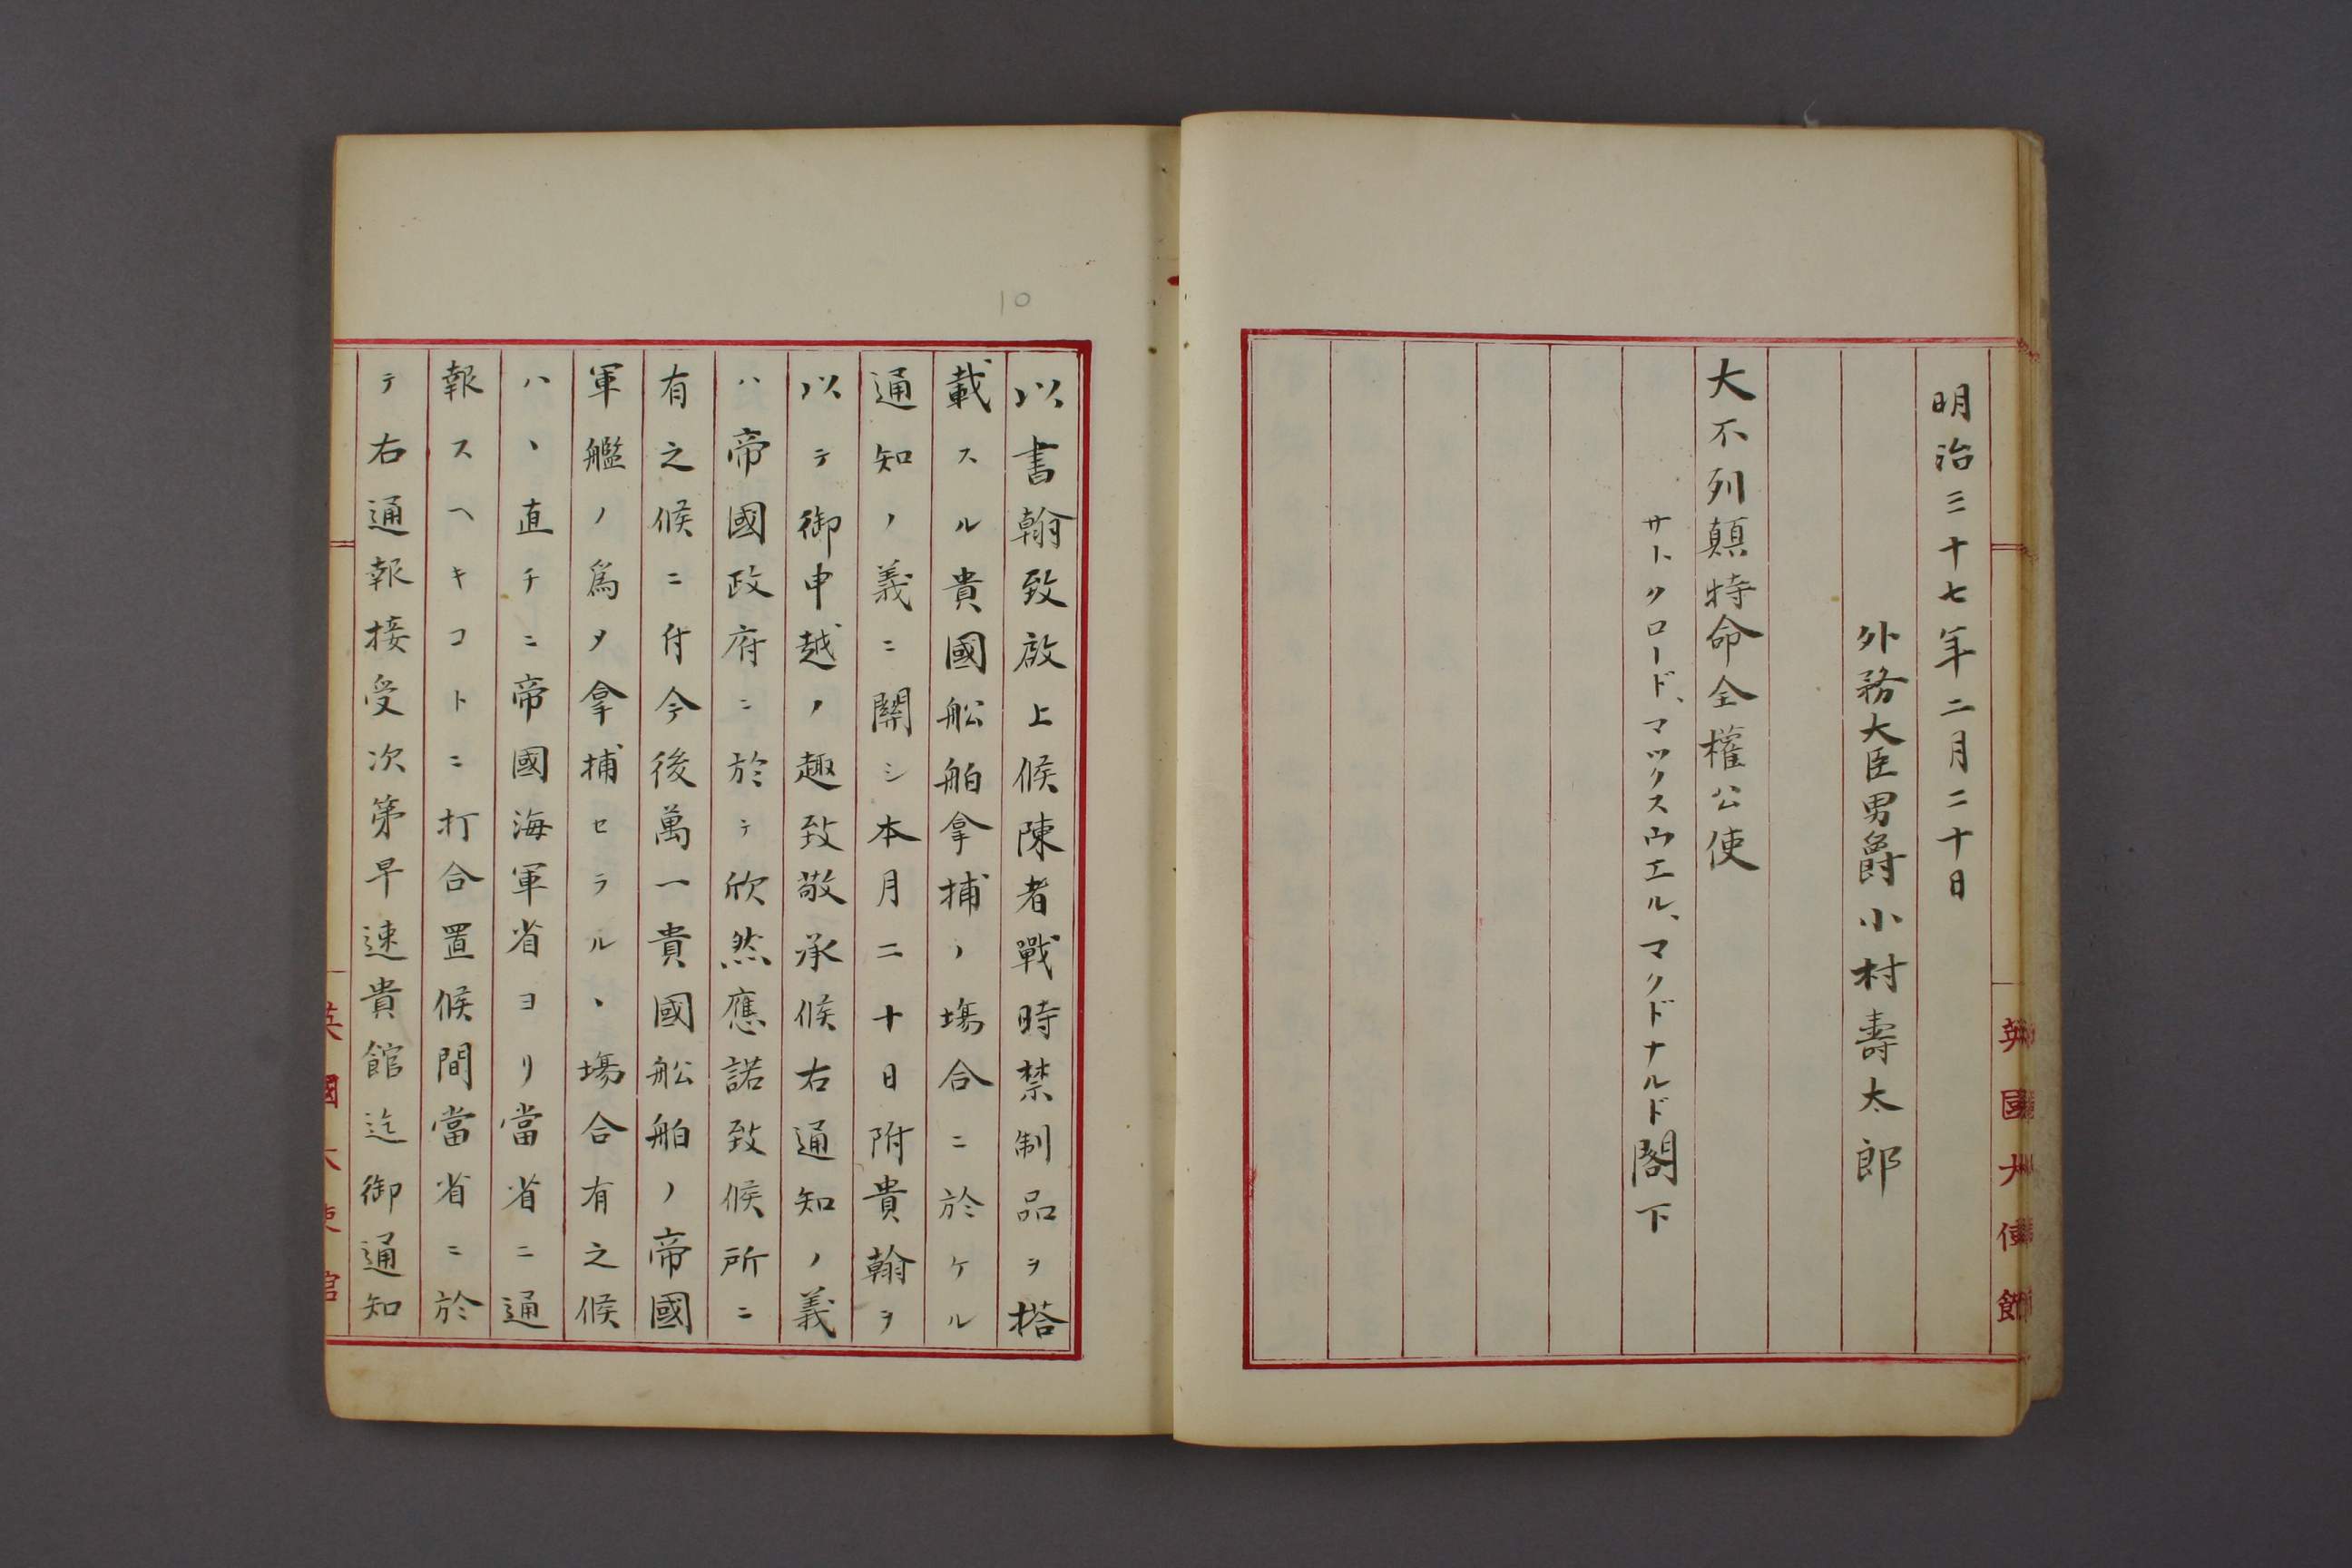 明治三十七年二月二十日
外務大臣男爵小村壽太郎
大不列顛特命全權公使
サー、クロード、マックスウエル、マクドナルド閣下
英國大使館
10
以書翰致啟上候陳者戰時禁制品ヲ搭
載スル貴國舩舶拿捕ノ塲合ニ於ケル
通知ノ義ニ關シ本月二十日附貴翰ヲ
以テ御申越ノ趣致敬承候右通知ノ義
ハ帝國政府ニ於テ欣然應諾致候所ニ
有之候ニ付今後萬一貴國舩舶ノ帝國
軍艦ノ爲メ拿捕セラルヽ塲合有之候
ハヽ直チニ帝國海軍省ヨリ當省ニ通
報スヘキコトニ打合置候間當省ニ於
テ右通報接受次第早速貴館迄御通知
英國大使館